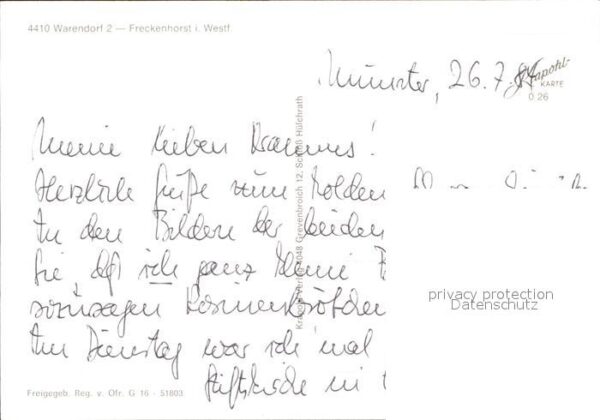 4410 Warendorf 2 — Freckenhorst i. Westf.
Münster, 26.7.84
Krapohl-
KARTE
0 26
Meine lieben Krammes!
Herzliche Grüße zum Golden
In den Bildern der beiden
Sie, daß ich ganz kleine
sozusagen Rosinenbrötchen
Am Dienstag war ich mal
Stiftskirche in
Krapohl-Verlag 4048 Grevenbroich 12, Schloß Hülchrath
privacy protection
Datenschutz
Freigegeb. Reg. v. Ofr. G 16 - 51803